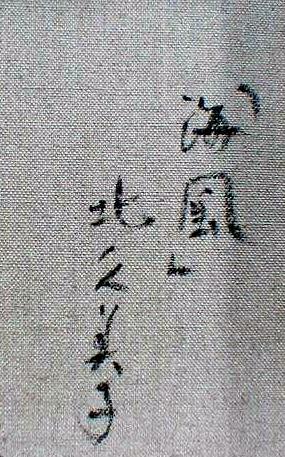 「海風」
北久美子